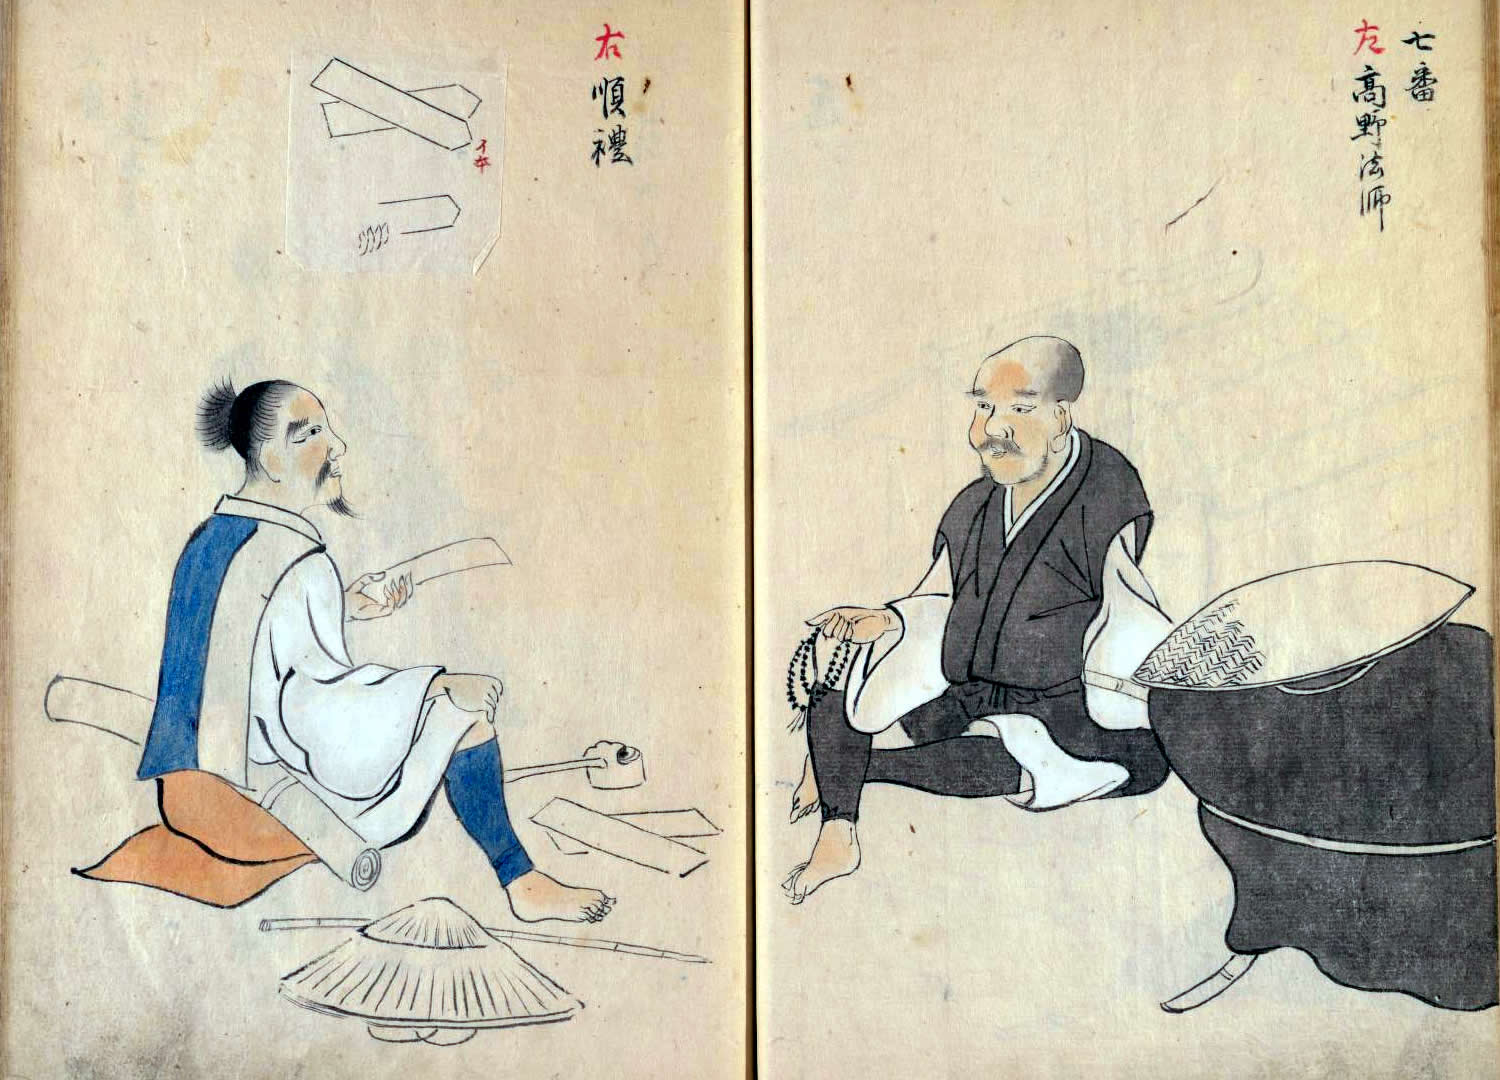 七番
左 高野法師
右 順禮
イ本